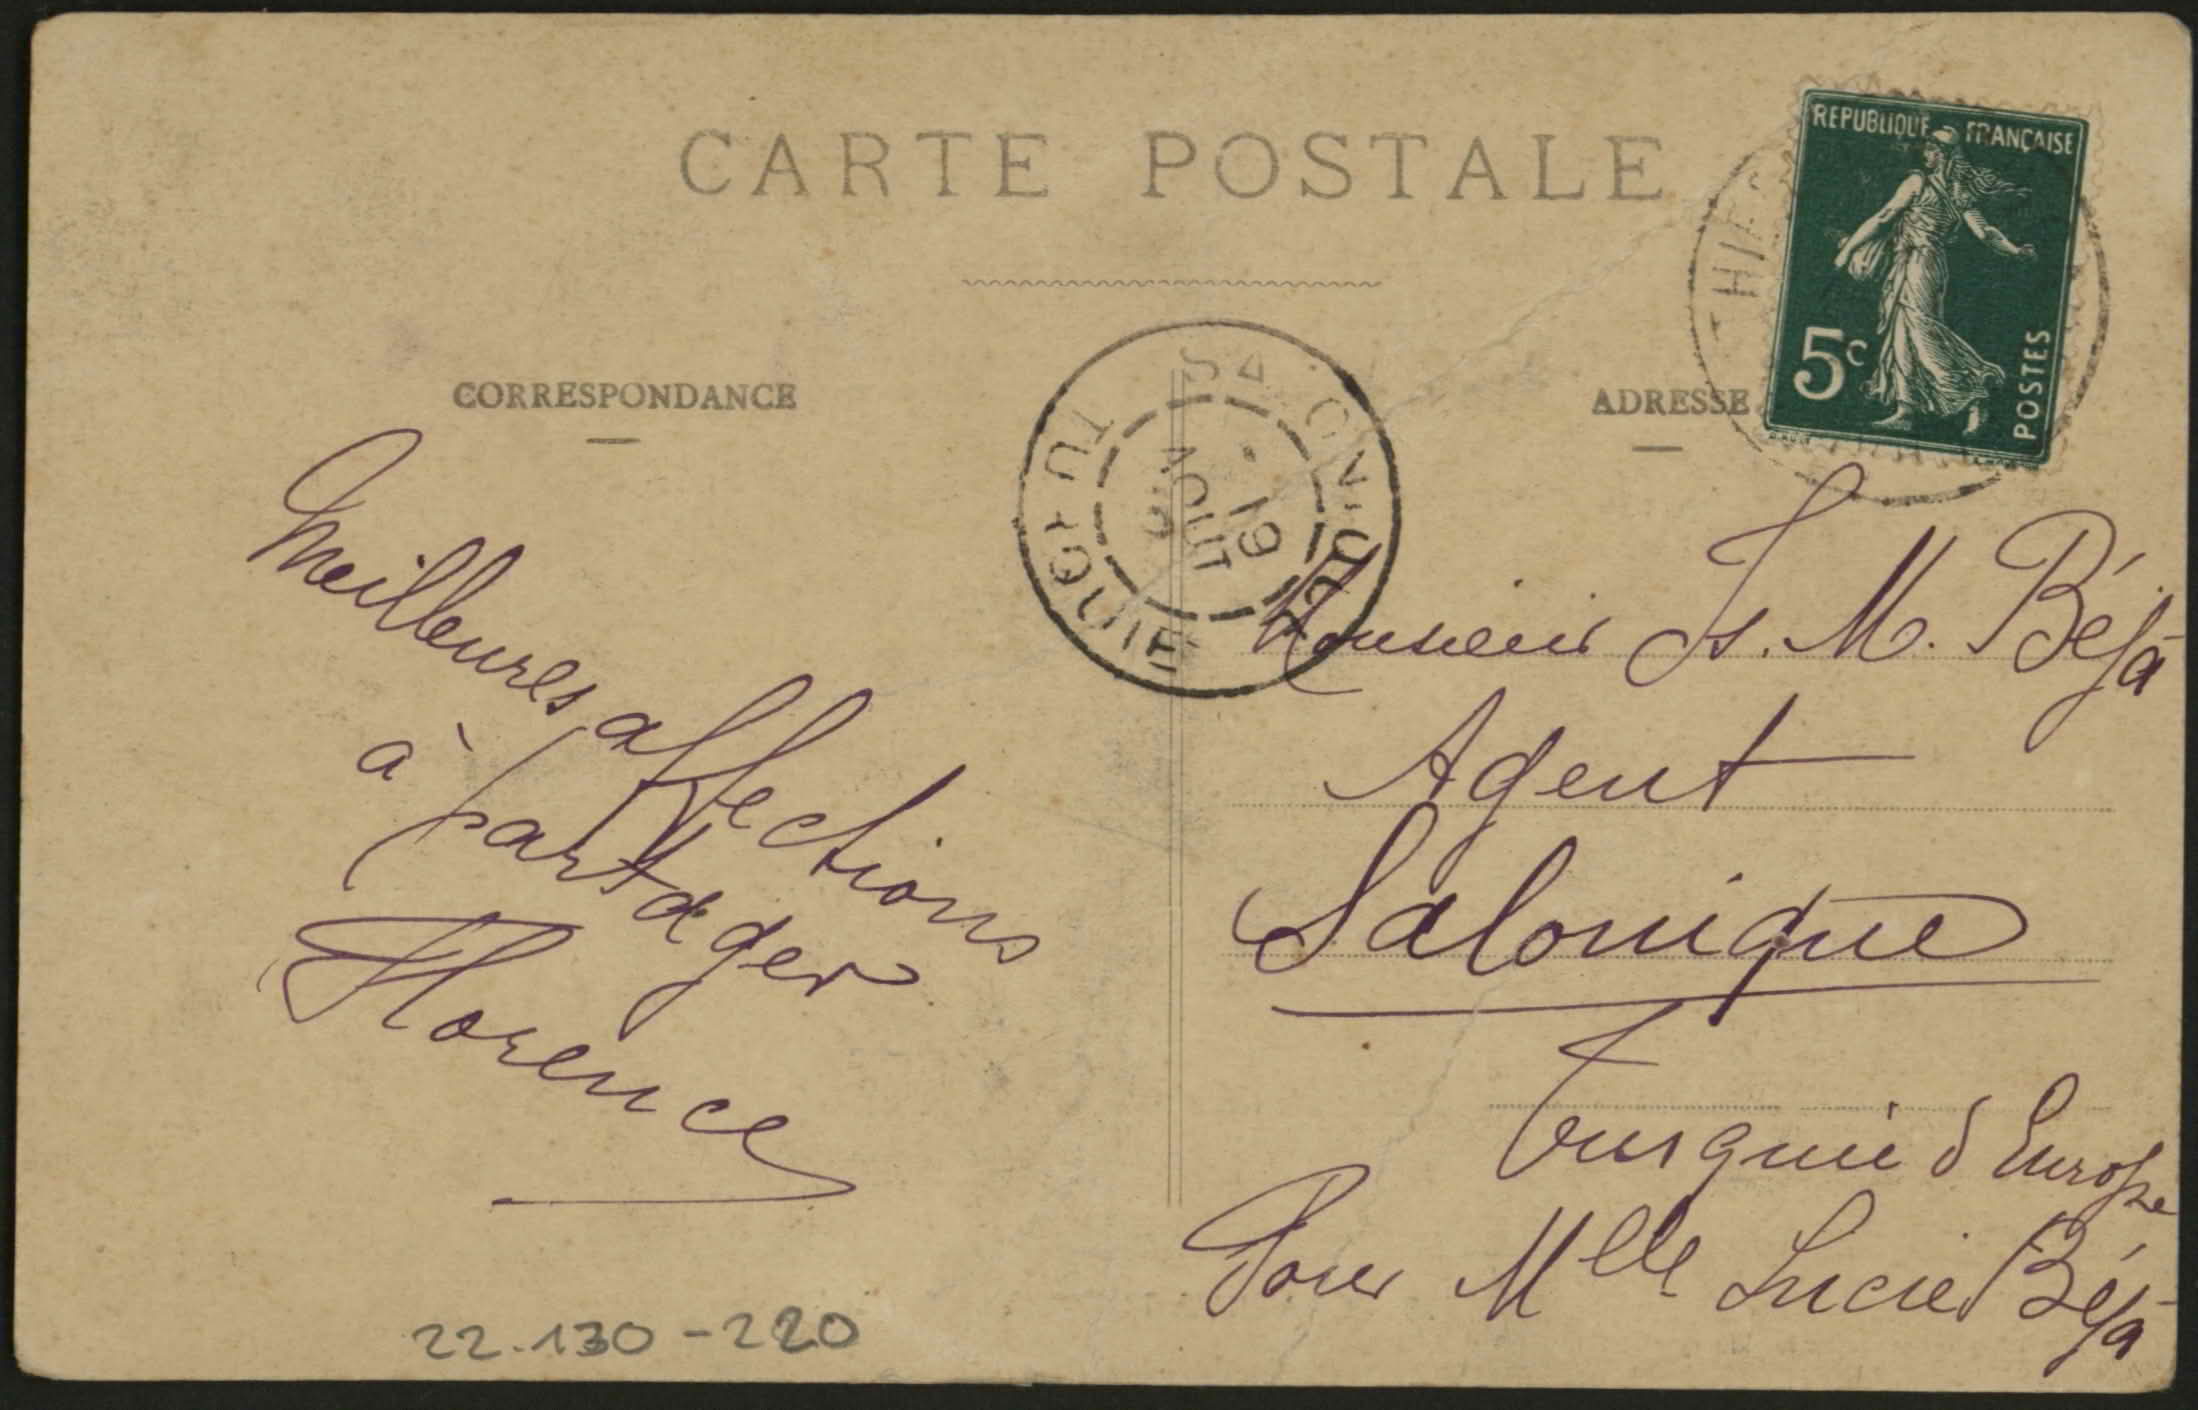 CARTE POSTALE
REPUBLIQUE FRANÇAISE
5c
POSTES
CORRESPONDANCE
ADRESSE
TURQUIE
19
AOUT
Meilleures affections
à partager
Florence
Monsieur Is. M. Béjà
Agent
Salonique
Turquie d'Europe
Pour Mlle Lucie Béjà
22.130-220